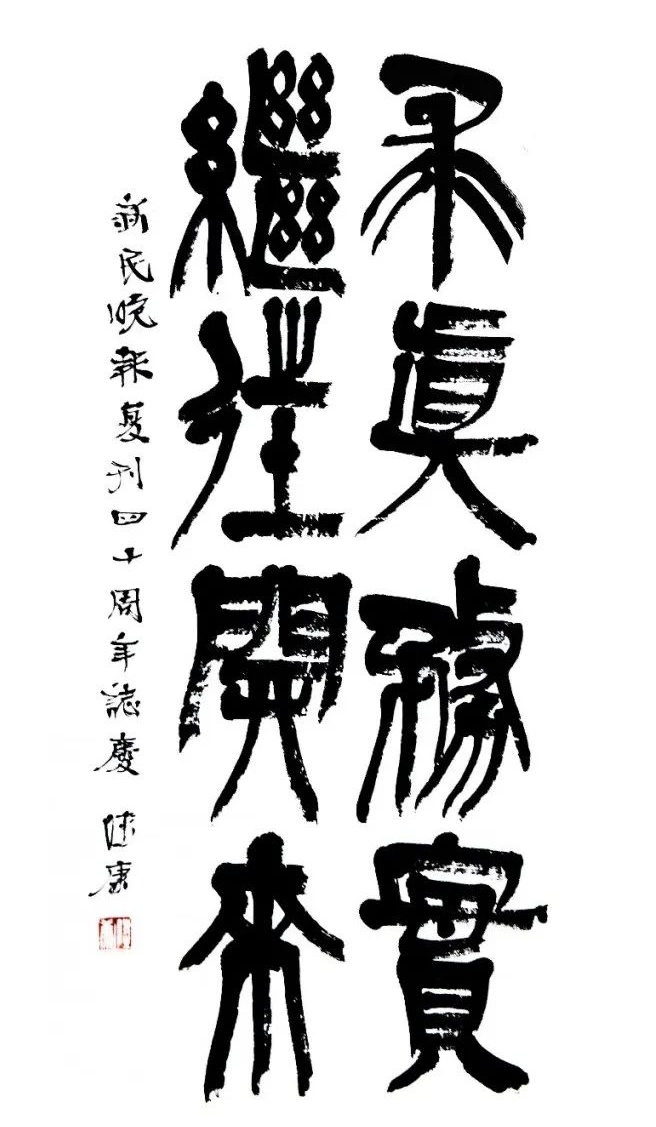 求真務實
繼往開來
新民晚報復刊四十周年誌慶 陸康